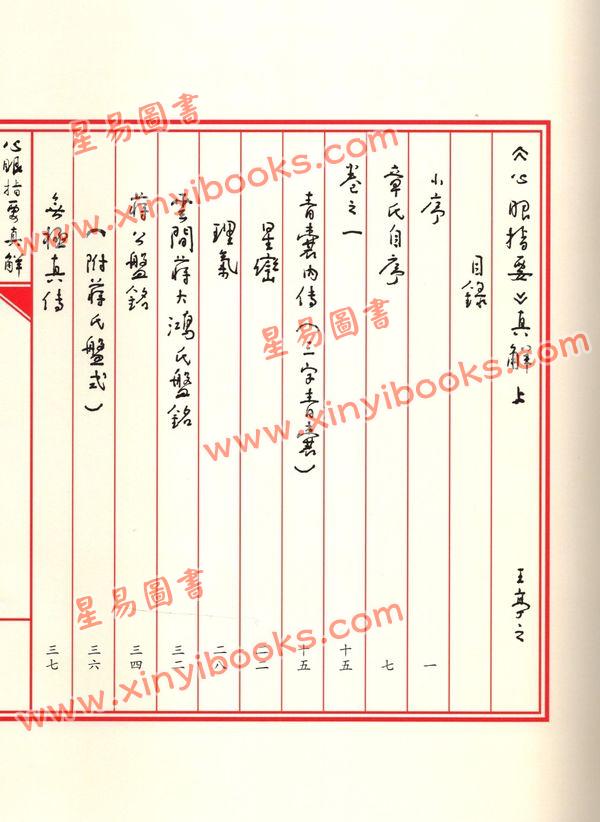 《心眼指要》真解上 王亭之
目錄
小序 一
章氏自序 七
卷之一 十五
青囊內傳(三字青囊) 十五
星巒 二一
理氣 二八
雲間蔣大鴻氏盤銘 三二
蔣公盤銘 三四
(附蔣氏盤式) 三六
無極真傳 三七
心眼指要真解
星易圖書
www.xinyibooks.com
星易圖書
www.xinyibooks.com
星易圖書
www.xinyibooks.com